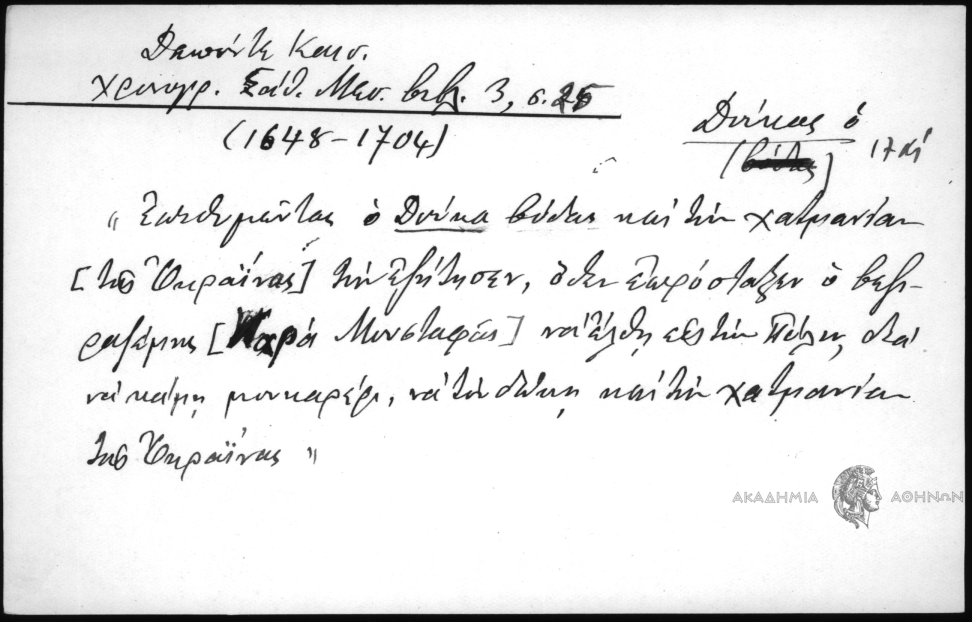 Δαπόντε Καισ.
Χρονογρ. Σάθ. Μεσ. βιβλ. 3, σ. 25
(1648-1704)
Δούκας ὁ
(βόδας) 17 αἰ
"Ἐπιθυμῶντας ὁ Δούκα βόδας καὶ τὴν χατμανίαν
[τῆς Οὐκραΐνας] τὴν ἐζήτησεν, ὅθεν ἐπρόσταξεν ὁ βεζι-
ραζέμης [Καρά Μουσταφᾶς] νὰ ἔλθῃ εἰς τὴν Πόλιν, διὰ
νὰ κάμῃ μουκαρέρι, νὰ τὸν δώσῃ καὶ τὴν χατμανίαν
τῆς Οὐκραΐνας"
ΑΚΑΔΗΜΙΑ ΑΘΗΝΩΝ